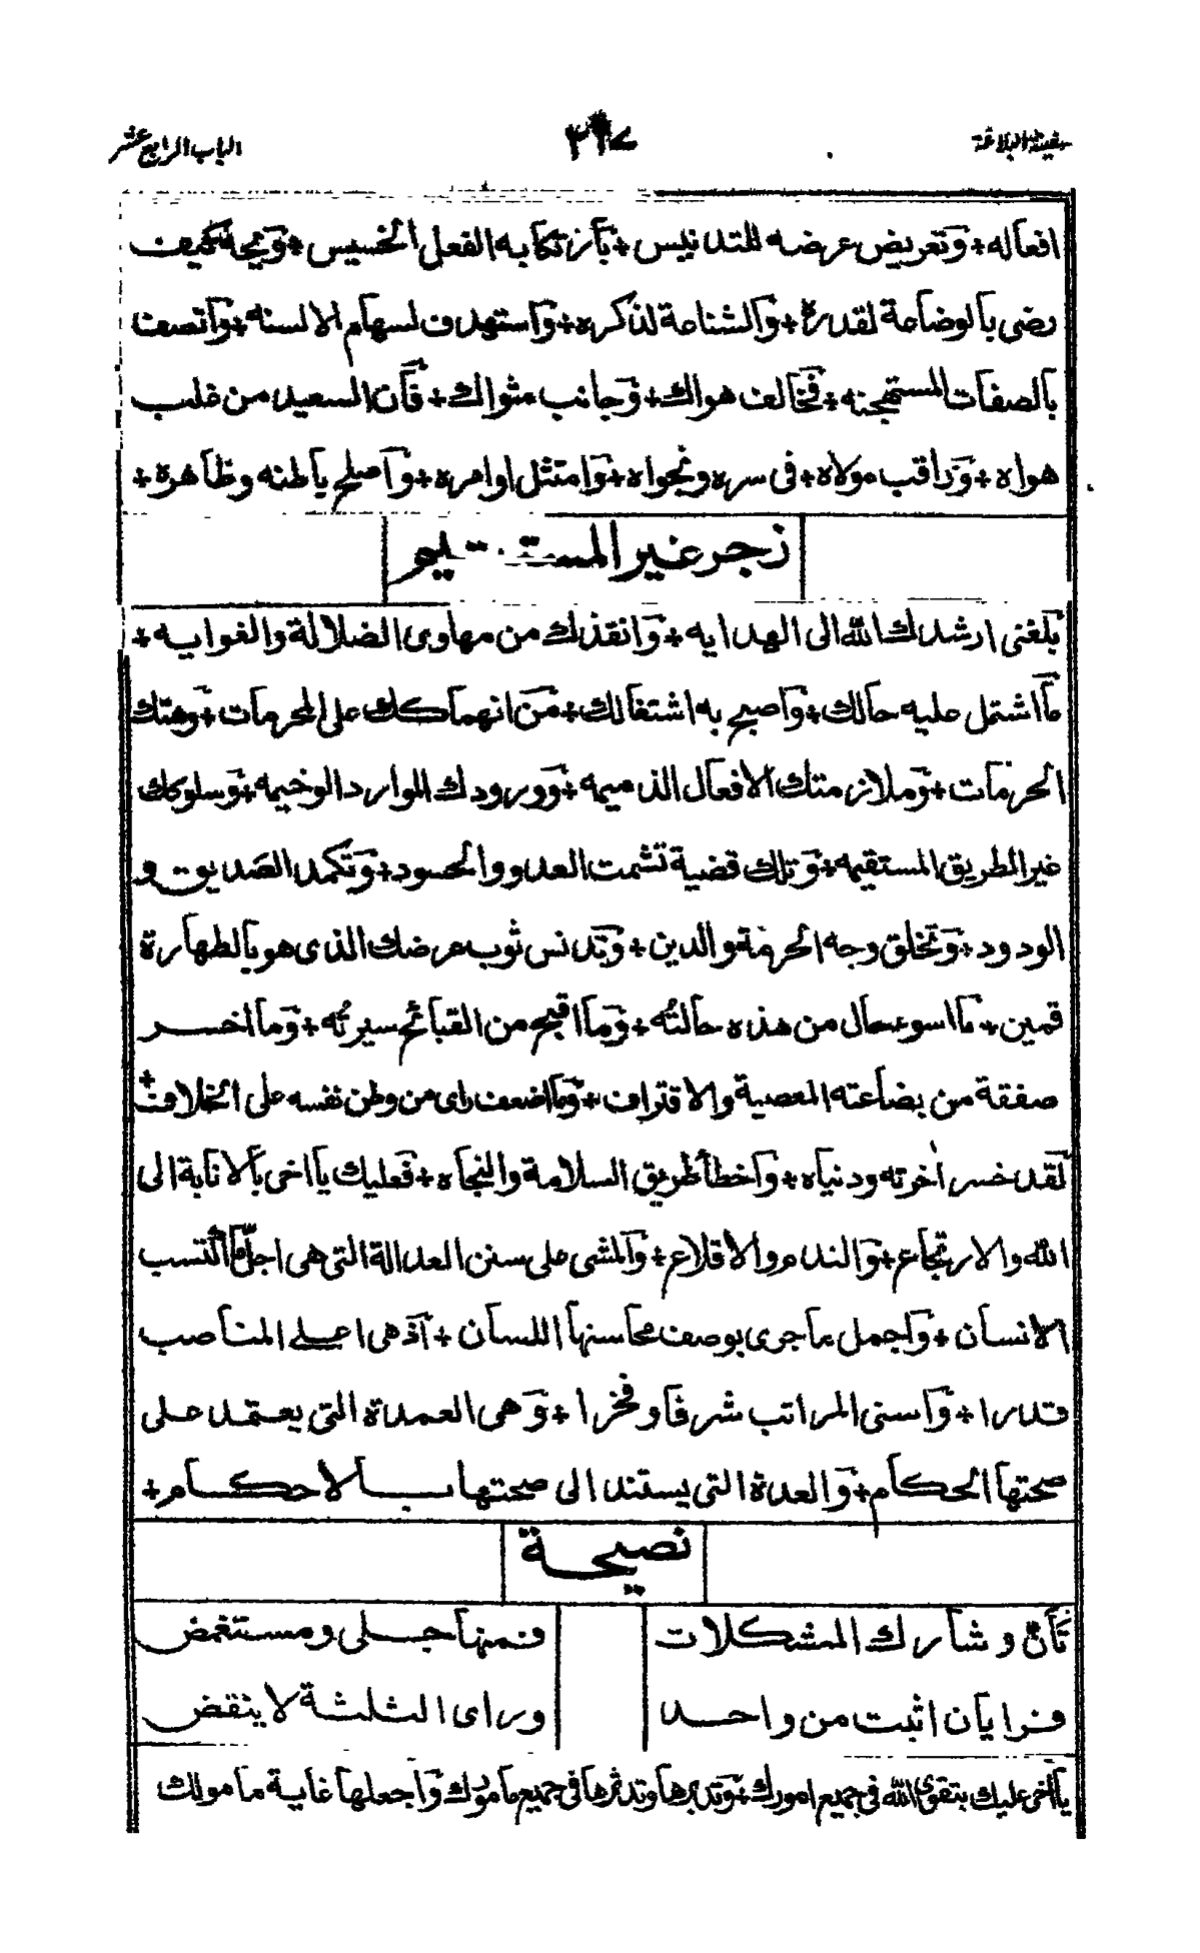 سفينة البلاغة
الباب الرابع عشر
افعاله + وتعريض عرضه للتدنيس + بارتكابه الفعل الخسيس + وعجبه كيف
رضى بالوضاعة لقدره + والشناعة لذكره + واستهدف لسهام الالسنه + واتصف
بالصفات المستهجنه + فخالف هواك + وجانب مثواك + فان السعيد من غلب
هواه + وراقب مولاه + فى سره ونجواه + وامتثل اوامره + واصلح باطنه وظاهره +
زجر غير المستقيم
بلغنى ارشدك الله الى الهدايه + وانقذك من مهاوى الضلالة والغوايه +
ما اشتمل عليه حالك + واصبح به اشتغالك + من انهماكك على المحرمات + وهتك
الحرمات + وملازمتك الافعال الذميمه + وورودك الموارد الوخيمه + وسلوكك
غير الطريق المستقيمه + وتلك قضية تشمت العدو والحسود + وتكمد الصديق و
الودود + وتخلق وجه الحرمة والدين + وتدنس ثوب عرضك الذى هو بالطهارة
قمين + ما اسوء حال من هذه حالته + وما اقبح من القبائح سيرته + وما اخسر
صفقة من بضاعته المعصية والاقتراف + وما اضعف راى من وطن نفسه على الخلاف +
لقد خسر اخرته ودنياه + واخطأ طريق السلامة والنجاه + فعليك يا اخى بالانابة الى
الله والارتجاع + والندم والاقلاع + والمشى على سنن العدالة التى هى اجل ما اكتسب
الانسان + واجمل ما جرى بوصف محاسنها اللسان + اذ هى اعلى المناصب
قدرا + واسنى المراتب شرفا وفخرا + وهى العمدة التى يعتمد على
صحتها الحكام + والعدة التى يستند الى صحتها ب‍الاحكام +
نصيحة
تأن وشارك المشكلات فمنها جلى ومستغمض
فرايان اثبت من واحد وراى الثلثة لا ينقض
يا اخى عليك بتقوى الله فى جميع امورك + وتدبرها وتدثرها فى جميع مأمورك واجعلها غاية مامولك